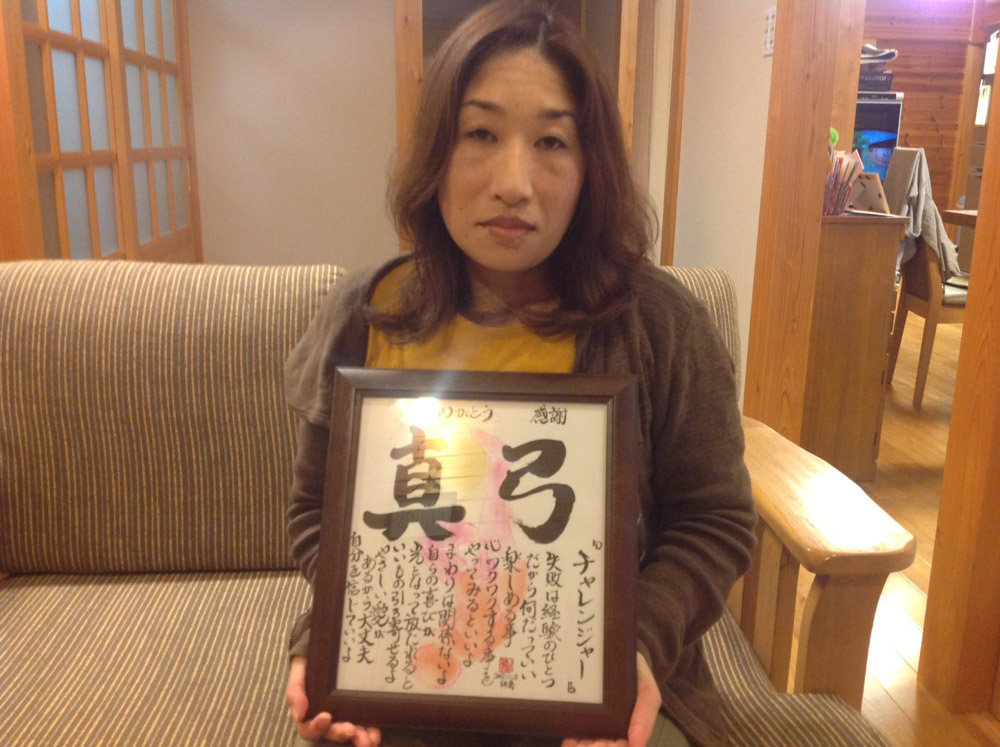 りがとう 感謝
真弓
『チャレンジャー』
失敗は経験のひとつ
だから何だっていい
楽しめる事
心ワクワクする事を
やってみるといいよ
まわりは関係ないよ
自らの喜びが
光となって放たれると
いいもの引き寄せるよ
やさしい愛が
あるから大丈夫
自分を信じていいよ